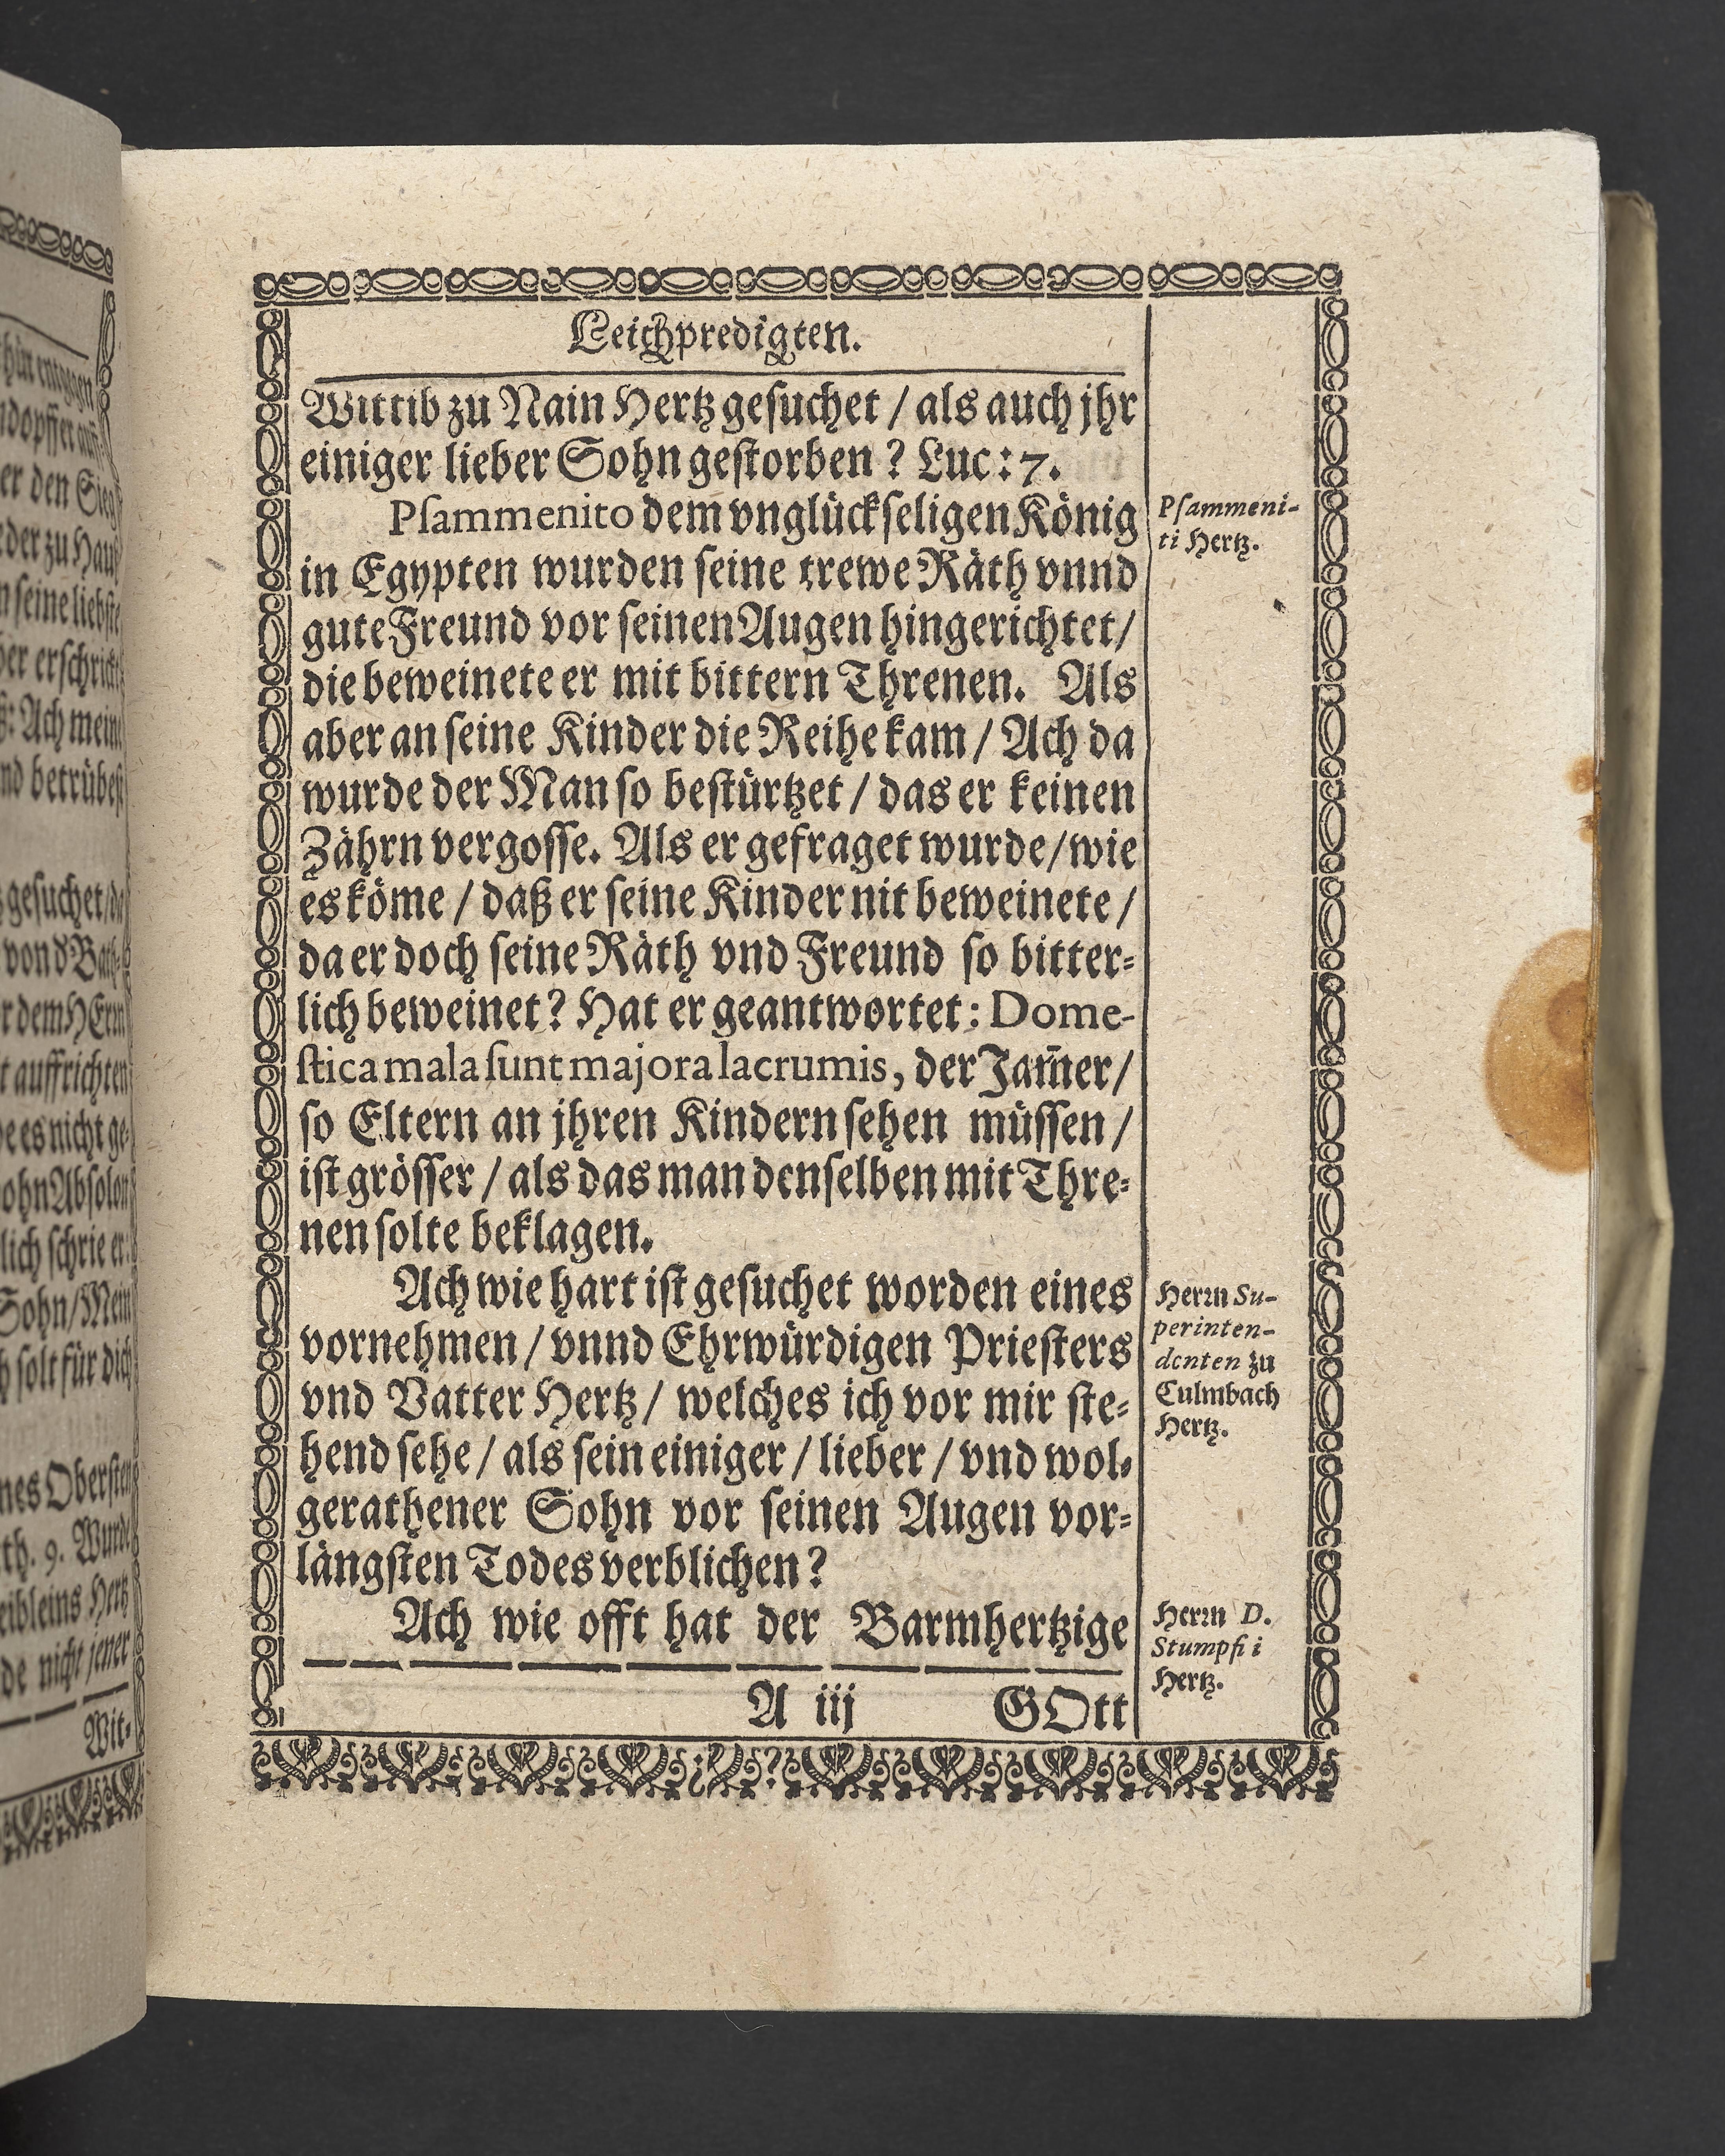 Leichpredigten.
Wittib zu Nain Hertz gesuchet / als auch jhr
einiger lieber Sohn gestorben ? Luc: 7.
Psammenito dem vnglückseligen König
in Egypten wurden seine trewe Räth vnnd
gute Freund vor seinen Augen hingerichtet /
die beweinete er mit bittern Threnen. Als
aber an seine Kinder die Reihe kam / Ach da
wurde der Man so bestürtzet / das er keinen
Zährn vergosse. Als er gefraget wurde / wie
es köme / daß er seine Kinder nit beweinete /
da er doch seine Räth vnd Freund so bitter-
lich beweinet? Hat er geantwortet: Dome-
stica mala sunt majora lacrumis, der Jam̃er /
so Eltern an jhren Kindern sehen müssen /
ist grösser / als das man denselben mit Thre-
nen solte beklagen.
Ach wie hart ist gesuchet worden eines
vornehmen / vnnd Ehrwürdigen Priesters
vnd Vatter Hertz / welches ich vor mir ste-
hend sehe / als sein einiger / lieber / vnd wol-
gerathener Sohn vor seinen Augen vor-
längsten Todes verblichen?
Ach wie offt hat der Barmhertzige
A iij GOtt
Psammeni-
ti Hertz.
Herrn Su-
perinten-
denten zu
Culmbach
Hertz.
Herrn D.
Stumpfii
Hertz.
gesuchet
auffrichten
es nicht ge-
solt für dich
nes Obersten
de nicht jener
Wit-